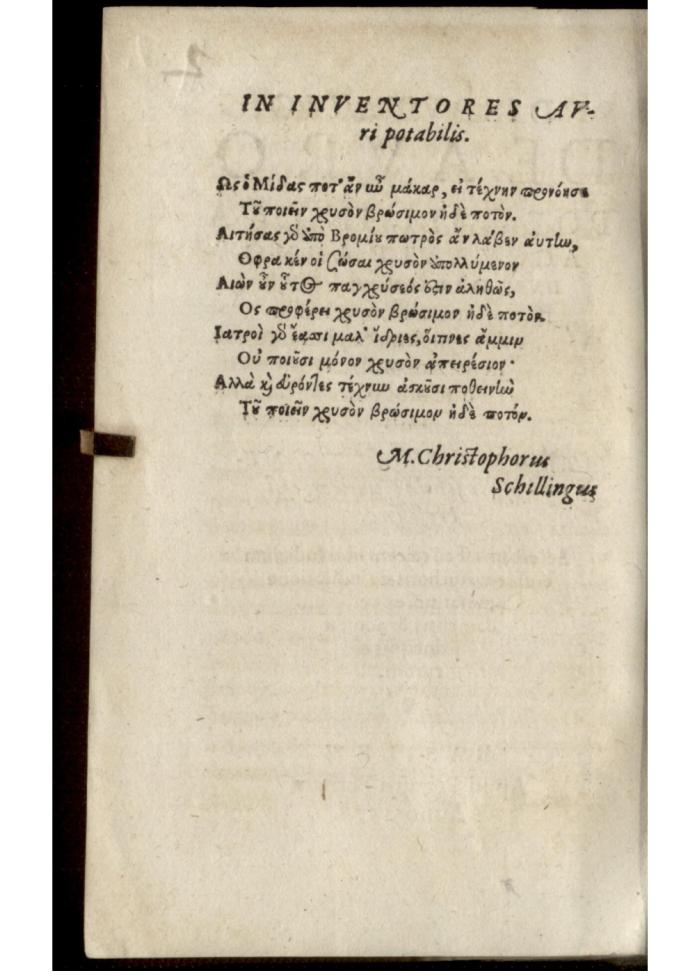 IN INVENTORES AV-
ri potabilis.
Ως ὁ Μίδας ποτ' ἂν ὦ μάκαρ, εἰ τέχνην προνόησε
Τῦ ποιεῖν χρυσὸν βρώσιμον ἠδὲ ποτὸν.
Αιτήσας γὸ ὑπὸ Βρομίυ πωτρὸς ἂν λάβεν ἀυτίω,
Οφρα κέν οἱ ζώσαι χρυσὸν ὑπολλύμενον
Αιὼν ὖν ὗτος παγχρύσεός ὅξιν ἀληθῶς,
Ος προφέρει χρυσὸν βρώσιμον ἠδὲ ποτὸν
Ιατροὶ γὸ ἔασι μαλ' ἴδριες, ὅιπνες ἄμμιμ
Οὐ ποιῦσι μόνον χρυσὸν ἀπειρέσιον·
Αλλὰ κὶ ἑυρόντες τέχνίω ἀσκῦσι ποθεινίω
Τῦ ποιεῖν χρυσὸν βρώσιμομ ἠδὲ ποτόν.
M. Christophorus
Schillingus
2